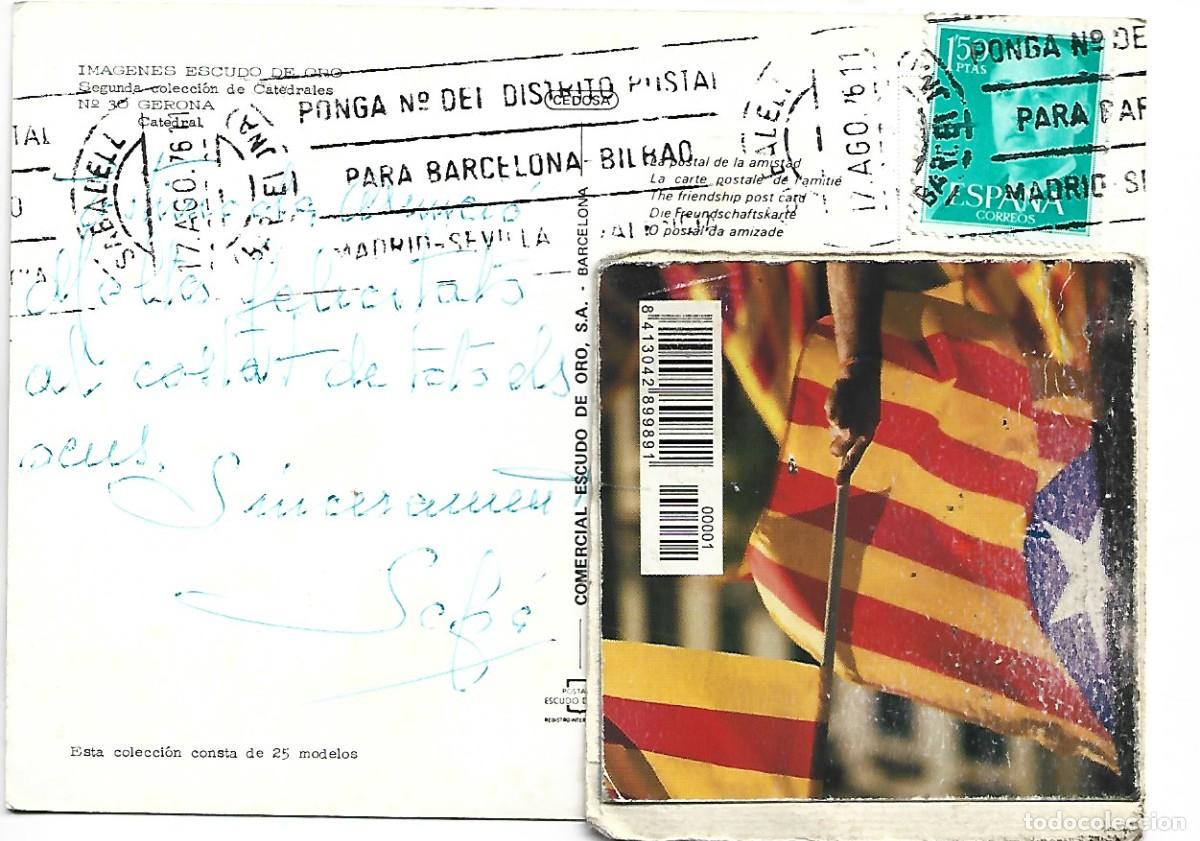 IMAGENES ESCUDO DE ORO
Segunda colección de Catedrales
Nº 30 GERONA
Catedral
SABADELL
17.AGO.76 11
PONGA Nº DEL DISTRITO POSTAL
PARA BARCELONA-BILBAO
MADRID-SEVILLA
CEDOSA
La postal de la amistad
La carte postale de l'amitié
The friendship post card
Die Freundschaftskarte
O postal da amizade
17.AGO.76 11
1'50
PTAS
ESPAÑA
CORREOS
PONGA Nº DE
PARA BAR
MADRID-S
Moltes felicitats
al costat de tots els
seus.
Sincerament
COMERCIAL ESCUDO DE ORO, S.A. - BARCELONA
POSTA
ESCUDO D
REGISTRO INTER
Esta colección consta de 25 modelos
8 413042 899891
00001
todocoleccion